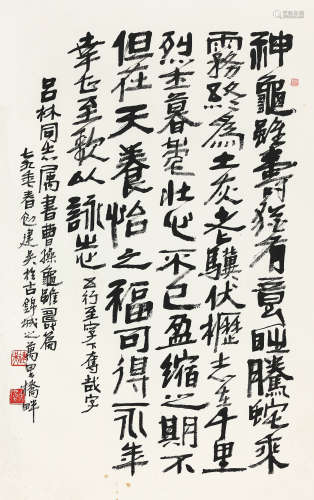 神龜雖壽猶有竟時騰蛇乘
霧終為土灰老驥伏櫪志在千里
烈士暮年壯心不已盈縮之期不
但在天養怡之福可得永年
幸甚至歌以詠志 五行至字下奪哉字
呂林同志屬書曹操龜雖壽篇
七五年春 於古錦城之萬里橋畔